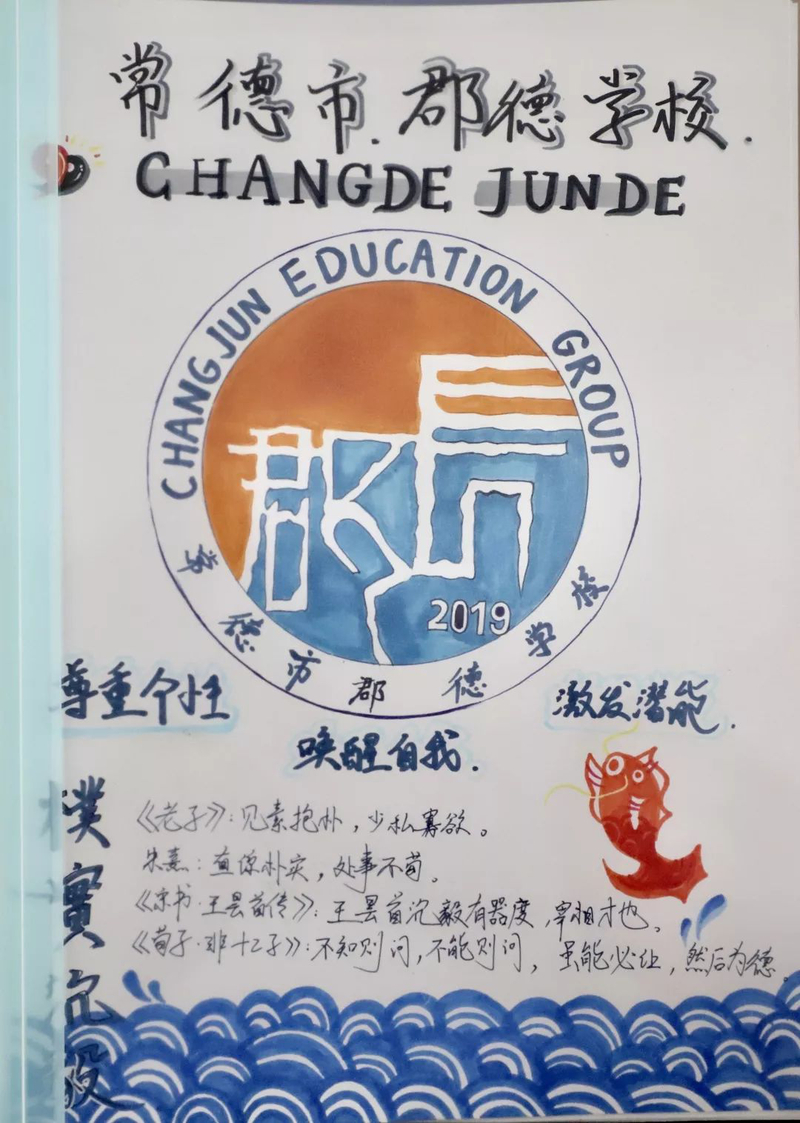 常德市郡德学校.
CHANGDE JUNDE
CHANGJUN EDUCATION GROUP
2019
常德市郡德学校
尊重个性
激发潜能.
唤醒自我.
樸實沉毅
《老子》:见素抱朴,少私寡欲。
朱熹:直谅朴实,处事不苟。
《宋书·王昙首传》:王昙首沉毅有器度,宰相才也。
《荀子·非十二子》:不知则问,不能则问,虽能必让,然后为德。